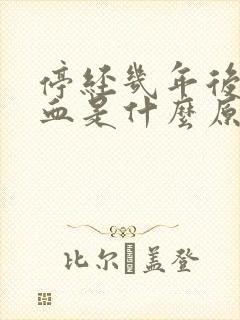 停經幾年後
血是什麼原
比尔 盖登